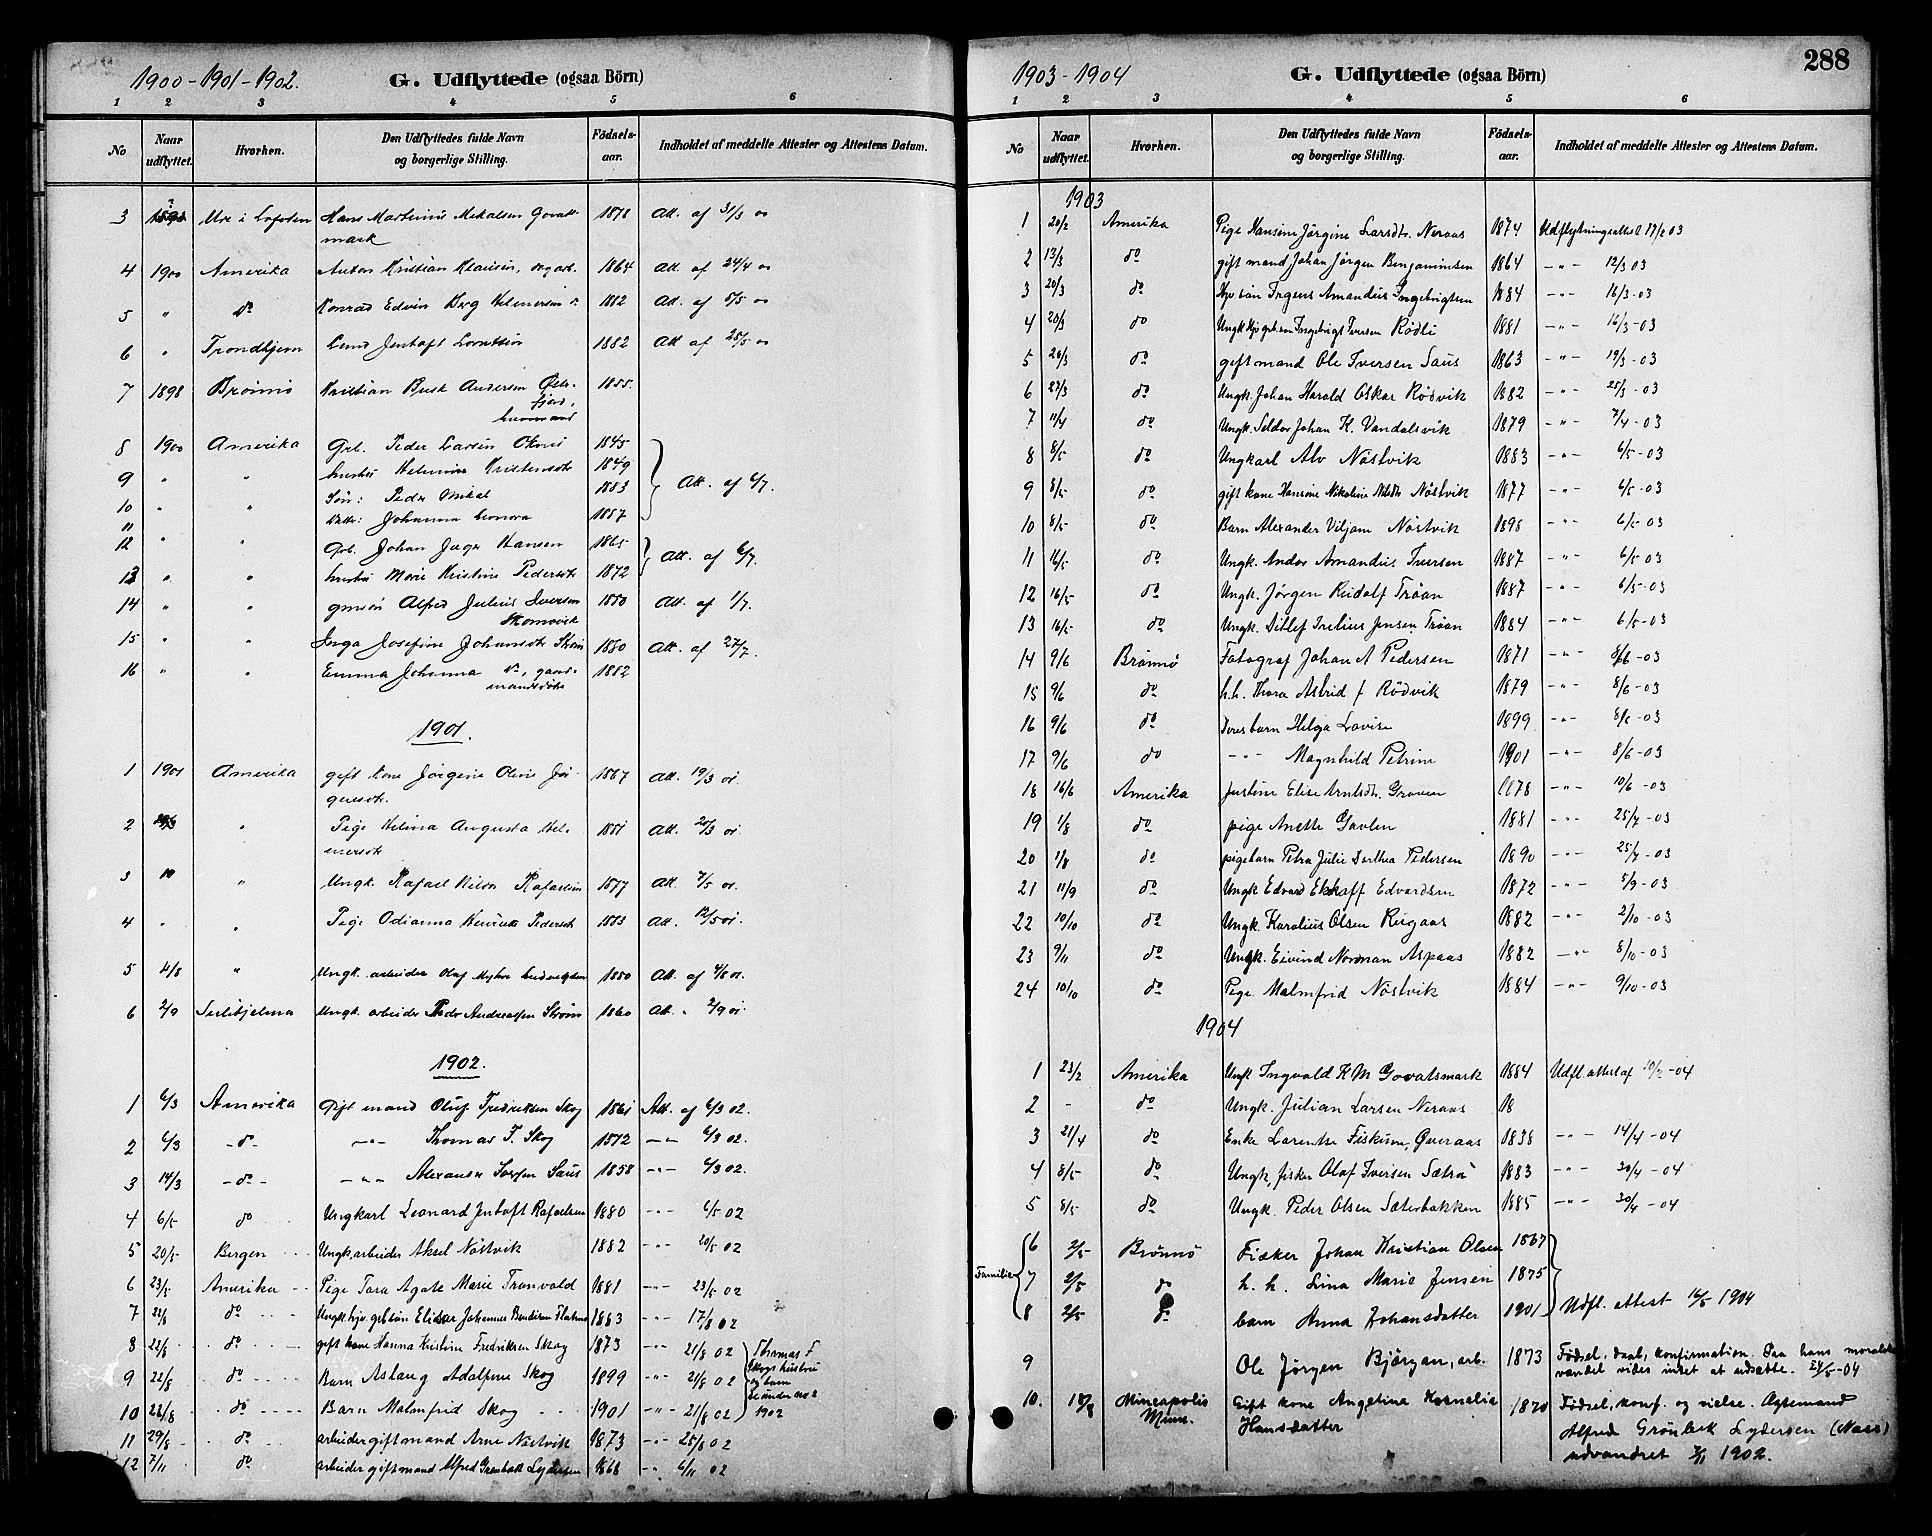 1900-1901-1902.
G. Udflyttede (ogsaa Börn)
1 2 3 4 5 6
No
Naar udflyttet.
Hvorhen.
Den Udflyttedes fulde Navn og borgerlige Stilling.
Födsels-aar.
Indholdet af meddelte Attester og Attestens Datum.
3 Ure i Lofoten Hans Martinus Mikalsen Govats- 1878 Att. af 31/3 00
mark
4 1900 Amerika Anton Kristian Klausen, 1864 Att. af 24/4 00
5 " do Konrad Edvin Berg Helmersen 1882 Att. af 5/5 00
6 " Trondhjem Jentoft Lorntsen 1882 Att af 28/5 00
7 1898 Brönnö Kristian Busk Andersen 1855.
fjord,
8 1900 Amerika Grb. Peder Larsen 1845
9 " " hustru Helmine Kristensdtr 1849
10 " " Sön: Peder Mikal 1883 Att. af 6/7.
11 Datter: Johanna Leonora 1887
12 " " Grb. Johan Jæger Hansen 1865
13 " " hustru Marie Kristine Pedersdtr 1872 Att. af 6/7.
14 " " Alfred Julius Iversen 1880 Att. af 1/7.
15 " " Inga Josefine Johansdtr Ström 1880 Att. af 27/7.
16 " " Emma Johanna do, gaard- 1882
mandsdtr
1901.
1 1901 Amerika gift kone Jörgine Oline Jör- 1867 Att. 19/3 01.
gensdtr.
2 " Pige Helma Augusta Hel- 1881 Att. 20/3 01.
mersdtr
3 " " Ungk. Rafael Nilsen Rafaelsen 1877 Att. 7/5 01.
4 " " Pige Odianna Henriette Pedersdtr 1883 Att. 12/5 01.
5 4/8 " Ungk. arbeider Olaf 1880 Att. af 4/8 01.
6 2/9 Sulitjelma Ungk. arbeider Peder Andreassen Ström 1860 Att. " 2/9 01.
1902.
1 6/3 Amerika Gift mand Oluf Fredriksen Skog 1861 Att. af 6/3 02.
2 6/3 -do- -"- Thomas F. Skog 1872 -"- 6/3 02.
3 14/3 -do- -"- Alexander Saus 1858 -"- 6/3 02.
4 6/5 do Ungkarl Leonard Jentoft Rafaelsen 1880 -"- 6/5 02
5 20/5 Bergen Ungk, arbeider Aksel Nöstvik 1882 -"- 20/5 02
6 23/5 Amerika Pige Tara Agate Marie Tranvold 1881 -"- 23/5 02
7 22/8 do Ungk. hjv. gbr.sön Elisar Johannes 1883 -"- 17/8 02
8 22/8 do gift kone Hanna Kristine Fredriksen Skog 1873 -"- 21/8 02
9 22/8 do Barn Aslaug Adolfine Skog 1899 -"- 21/8 02
10 22/8 do Barn Malmfrid Skog 1901 -"- 21/8 02
Thomas F.
Skogs hustru
og barn
se under no 2
1902
11 29/8 do arbeider gift mand Arne Nöstvik 1873 -"- 25/8 02
12 7/11 do arbeider gift mand Alfred Grönbek Lydersen 1868 -"- 6/11 02
288
1903-1904
G. Udflyttede (ogsaa Börn)
1 2 3 4 5 6
No
Naar udflyttet.
Hvorhen.
Den Udflyttedes fulde Navn og borgerlige Stilling.
Födsels-aar.
Indholdet af meddelte Attester og Attestens Datum.
1903
1 20/2 Amerika Pige Hansine Jörgine Larsdtr. Neraas 1874 Udflytningsattest 17/2 03
2 13/3 do gift mand Johan Jörgen Benjaminsen 1864 -"- 12/3 03
3 20/3 do Amandus Ingebrigtsen 1884 -"- 16/3-03
4 20/3 do Ungk Ingebrigt Iversen Rödli 1881 -"- 16/3-03
5 20/3 do gift mand Ole Iversen Saus 1863 -"- 19/3-03
6 27/3 do Ungk. Johan Harald Oskar Rödvik 1882 -"- 25/3-03
7 11/4 do Ungk. Seldor Johan K. Vandalsvik 1879 -"- 7/4-03
8 8/5 do Ungkarl Alv Nöstvik 1883 -"- 6/5-03
9 8/5 do gift kone Hansine Nikoline Nilsdtr Nöstvik 1877 -"- 6/5-03
10 8/5 do Barn Alexander Viljam Nöstvik 1898 -"- 6/5-03
11 16/5 do Ungk. Andor Amandus Iversen 1887 -"- 6/5-03
12 16/5 do Ungk. Jörgen Rudolf Tröan 1887 -"- 6/5-03
13 16/5 do Ungk. Ditlef Jensen Tröan 1884 -"- 6/5-03
14 9/6 Brönnö Fotograf Johan A Pedersen 1871 -"- 8/6-03
15 9/6 do h.h. Thora Astrid f Rödvik 1879 -"- 8/6-03
16 9/6 do Deres barn Helga Lovise 1899 -"- 8/6-03
17 9/6 do -"- Magnhild Petrine 1901 -"- 8/6-03
18 16/6 Amerika Justine Elise Arntsdtr. Granen 1878 -"- 10/6-03
19 1/8 do pige Anette Gavlen 1881 -"- 25/7-03
20 1/8 do pigebarn Petra Julie Dorthea Pedersen 1890 -"- 25/7-03
21 11/9 do Ungk Edvard Ekhoff Edvardsen 1872 -"- 5/9-03
22 10/10 do Ungk. Karolius Olsen Rugaas 1882 -"- 2/10-03
23 9/11 do Ungk. Eivind Norman Aspaas 1882 -"- 8/10-03
24 10/10 do Pige Malmfrid Nöstvik 1884 -"- 9/10-03
1904
1 23/2 Amerika Ungk Ingvald K M Govatsmark 1884 Udfl. attest af 10/2-04
2 - do Ungk. Julian Larsen Neraas 18
3 21/4 do Enke Larentse Fiskum, Qveraas 1838 -"- 14/4-04
4 8/5 do Ungk, fisker Olaf Iversen Sætra 1883 -"- 30/4-04
5 8/5 do Ungk. Peder Olsen Sæterbakken 1885 -"- 30/4-04
Familie
6 2/5 Brönnö Fisker Johan Kristian Olsen 1867
7 2/5 do h. h. Lina Marie Jensen 1875
8 2/5 do barn Anna Johansdatter 1901 Udfl. attest 16/5 1904
9 Ole Jörgen Björgan, arb. 1873 Födsel, daab, konfirmation. Paa hans moralske
vandel vides intet at udsætte. 24/5-04
10. 18/8 Mineapolis Gift kone Angelina Kornelia 1870 Födsel, konf. og vielse. Ægtemand
Minn. Hansdatter Alfred Grönbek Lydersen (Næss)
udvandret 7/11 1902.